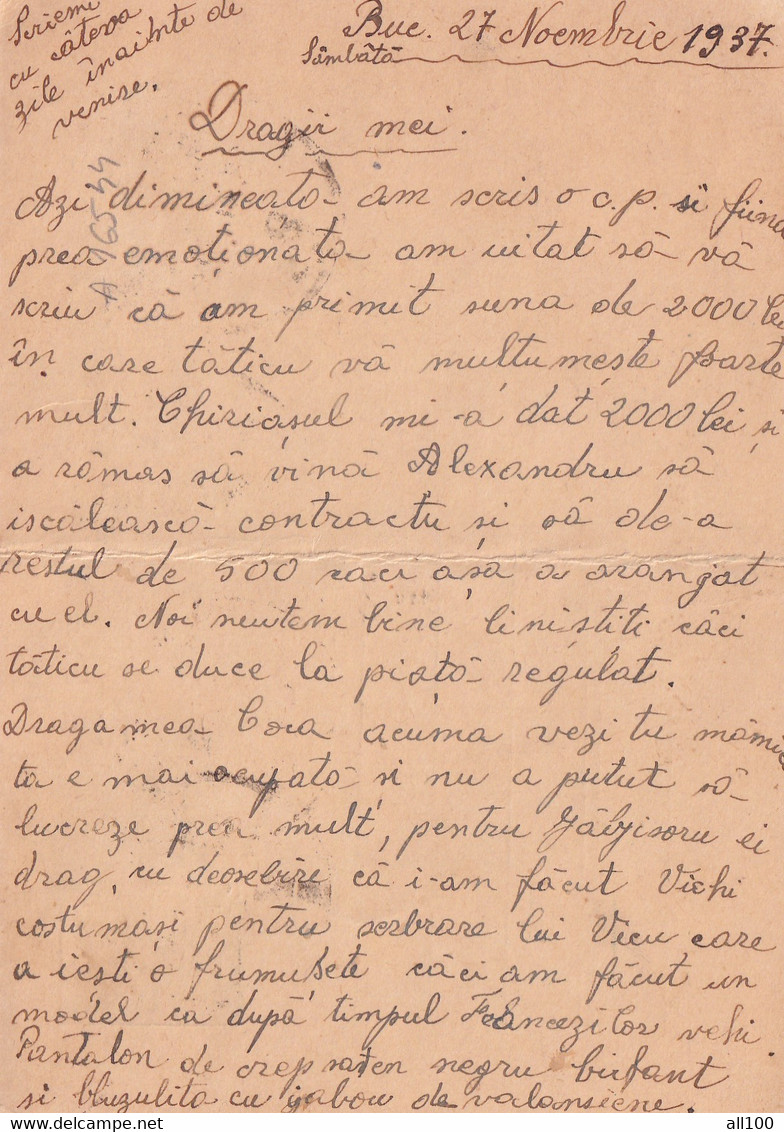 Scriemi
cu câteva
zile înainte de
venire.
Buc. 27 Noembrie 1937.
Sâmbătă
Dragii mei.
A 165-44
Azi dimineata am scris o c.p. si fiind
prea emoționata am uitat să vă
scriu că am primit suma de 2000 lei
în care tăticu vă multumește foarte
mult. Chiriașul mi-a dat 2000 lei și
a rămas să vină Alexandru să
iscălească contractu și să de-a
restul de 500 caci așa a aranjat
cu el. Noi suntem bine linistiti căci
tăticu se duce la piată regulat.
Draga mea Coca acuma vezi tu mămica
ta e mai ocupată si nu a putut să
lucreze prea mult, pentru ei
drag, cu deosebire că i-am făcut Vichi
costumasi pentru serbrare lui Vicu care
a iesti o frumusete căci am făcut un
model ca după timpul Francezilor vehi
Pantalon de crep saten negru bufant
si bluzulita cu jabou de valansiene.
all100